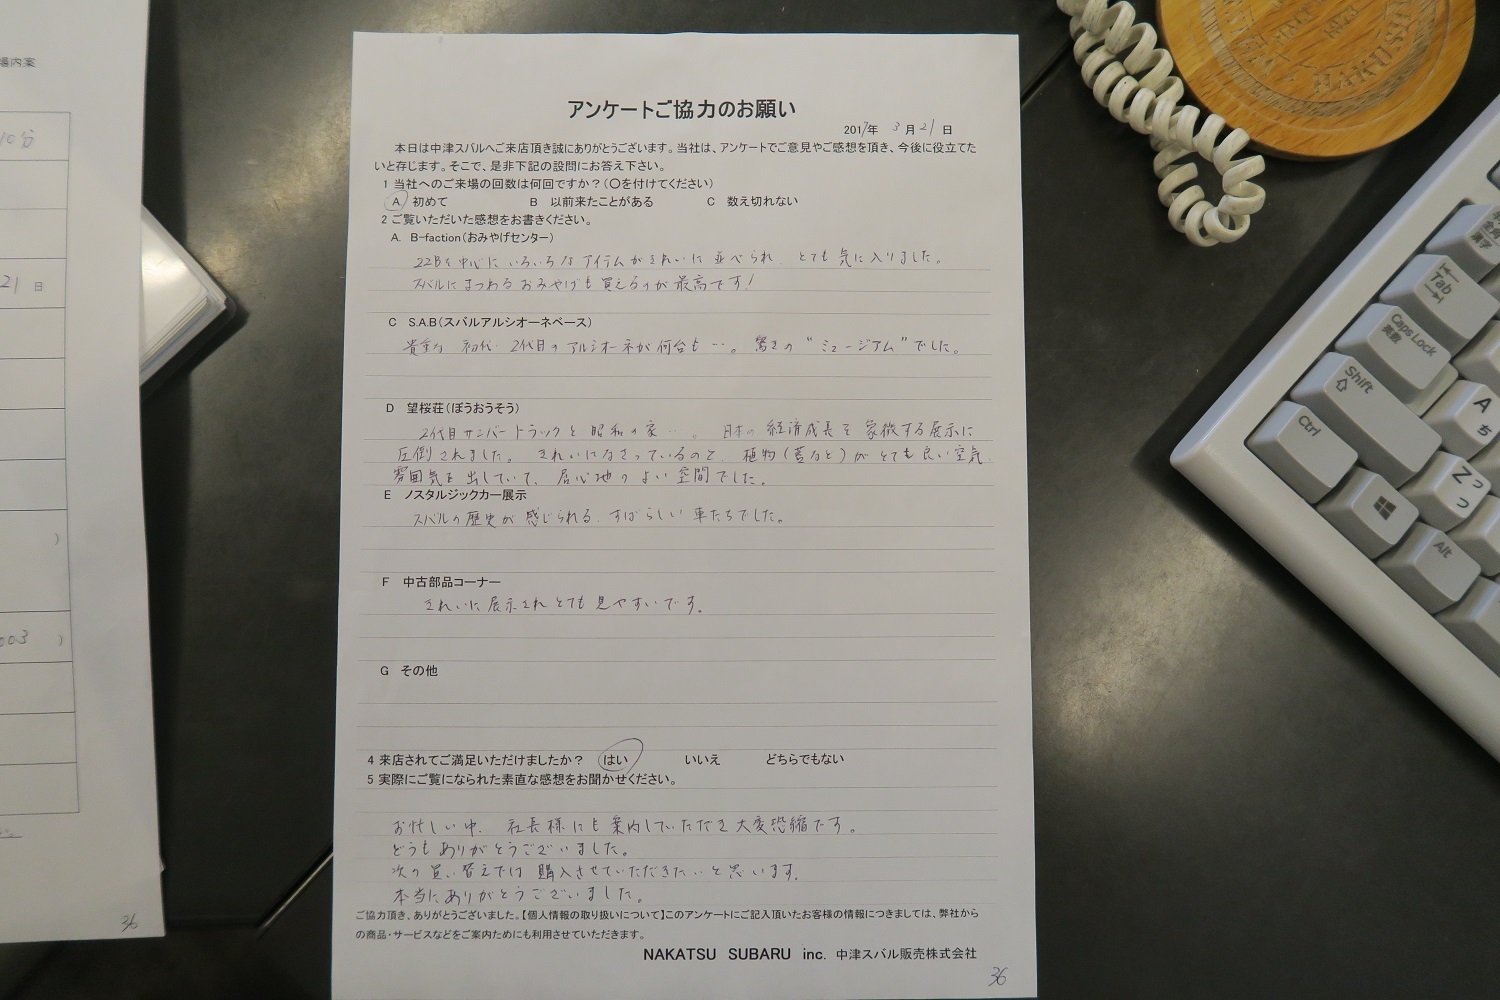 場内案
10分
21 日
)
003 )
36
アンケートご協力のお願い
2017年 3月21日
本日は中津スバルへご来店頂き誠にありがとうございます。当社は、アンケートでご意見やご感想を頂き、今後に役立てた
いと存じます。そこで、是非下記の設問にお答え下さい。
1 当社へのご来場の回数は何回ですか？(○を付けてください)
A 初めて B 以前来たことがある C 数え切れない
2 ご覧いただいた感想をお書きください。
A. B-faction(おみやげセンター)
22Bを中心にいろいろなアイテムがきれいに並べられ、とても気に入りました。
スバルにまつわるおみやげも買えるのが最高です!
C S.A.B(スバルアルシオーネベース)
貴重な初代・2代目のアルシオーネが何台も…。驚きの"ミュージアム"でした。
D 望桜荘(ぼうおうそう)
2代目サンバートラックと昭和の家…。日本の経済成長を象徴する展示に
圧倒されました。きれいになさっているので、植物(苔など)がとても良い空気、
雰囲気を出していて、居心地のよい空間でした。
E ノスタルジックカー展示
スバルの歴史が感じられる、すばらしい車たちでした。
F 中古部品コーナー
きれいに展示されとても見やすいです。
G その他
4 来店されてご満足いただけましたか？ はい いいえ どちらでもない
5 実際にご覧になられた素直な感想をお聞かせください。
お忙しい中、社長様にも案内していただき大変恐縮です。
どうもありがとうございました。
次の買い替えでは購入させていただきたいと思います。
本当にありがとうございました。
ご協力頂き、ありがとうございました。【個人情報の取り扱いについて】このアンケートにご記入頂いたお客様の情報につきましては、弊社から
の商品・サービスなどをご案内ためにも利用させていただきます。
NAKATSU SUBARU inc. 中津スバル販売株式会社
36
Tab
Caps Lock
英数
Shift
Ctrl
Alt
A
ち
Z
つ
っ